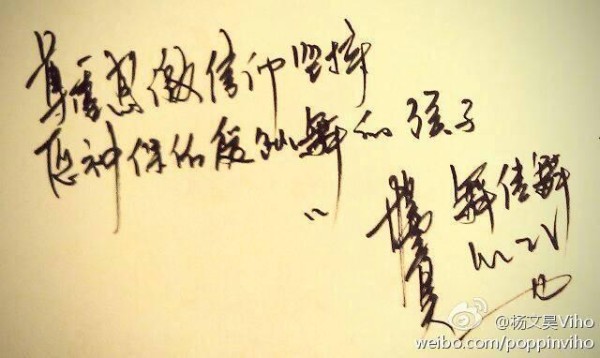 尊重感激信仰坚持
愿神保佑爱跳舞的孩子
舞佳舞
@杨文昊Viho
weibo.com/poppinviho